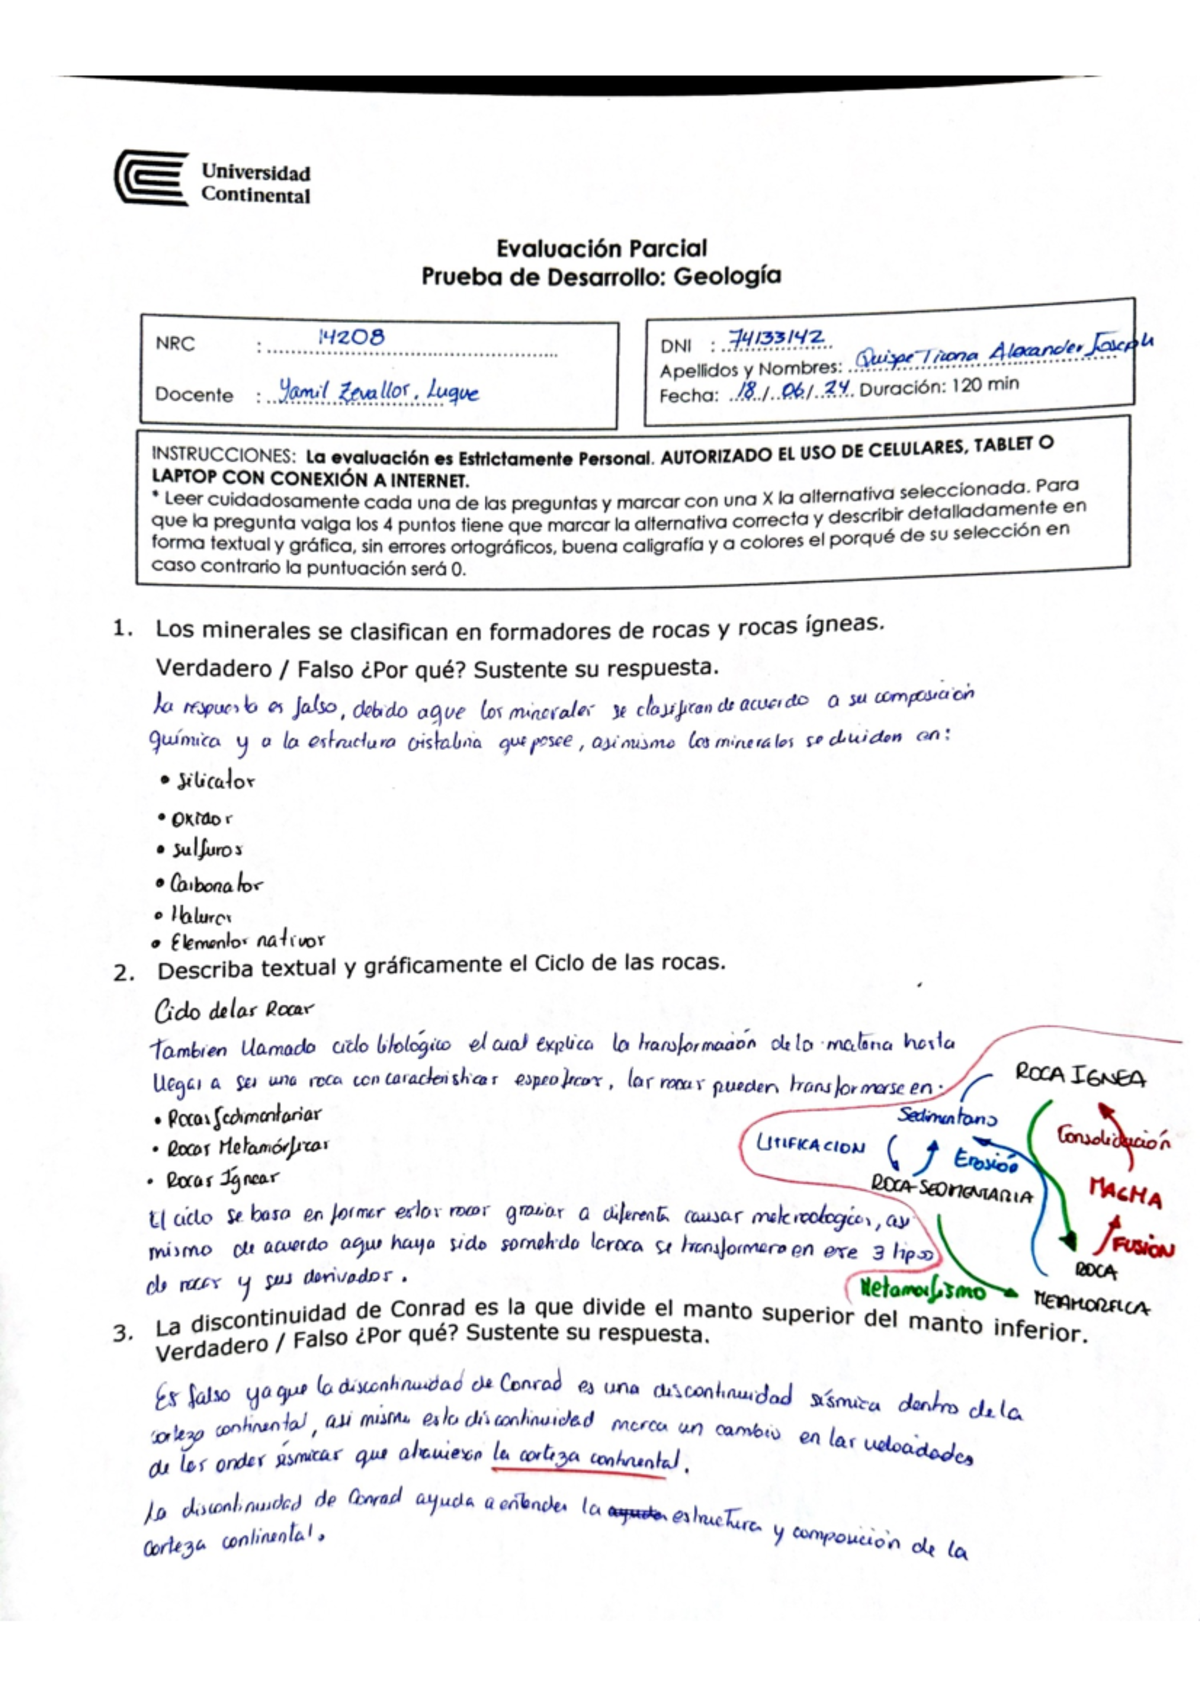 Universidad
Continental
Evaluación Parcial
Prueba de Desarrollo: Geología
NRC : 14208
Docente : Yamil Zevallos Luque
DNI : 74133142
Apellidos y Nombres: Quispe Ticona Alexander Joseph
Fecha: 18/06/24 Duración: 120 min
INSTRUCCIONES: La evaluación es Estrictamente Personal. AUTORIZADO EL USO DE CELULARES, TABLET O
LAPTOP CON CONEXIÓN A INTERNET.
* Leer cuidadosamente cada una de las preguntas y marcar con una X la alternativa seleccionada. Para
que la pregunta valga los 4 puntos tiene que marcar la alternativa correcta y describir detalladamente en
forma textual y gráfica, sin errores ortográficos, buena caligrafía y a colores el porqué de su selección en
caso contrario la puntuación será 0.
1. Los minerales se clasifican en formadores de rocas y rocas ígneas.
Verdadero / Falso ¿Por qué? Sustente su respuesta.
La respuesta es falso, debido aque los minerales se clasifican de acuerdo a su composición
química y a la estructura cristalina que posee, asi mismo los minerales se dividen en:
• Silicatos
• Oxidos
• Sulfuros
• Carbonatos
• Haluros
• Elementos nativos
2. Describa textual y gráficamente el Ciclo de las rocas.
Ciclo de las Rocas
Tambien llamado ciclo litológico el cual explica la transformación de la materia hasta
llegar a ser una roca con caracteristicas especificas, las rocas pueden transformarse en:
• Rocas Sedimentarias
• Rocas Metamórficas
• Rocas Ígneas
El ciclo se basa en formar estas rocas gracias a diferente causas meteorologicas, asi
mismo de acuerdo aque haya sido sometido la roca se transformara en ese 3 tipos
de rocas y sus derivados.
ROCA IGNEA
Sedimentario
Consolidación
LITIFICACION
Erosión
ROCA SEDIMENTARIA
MAGMA
FUSION
ROCA
METAMORFICA
Metamorfismo
3. La discontinuidad de Conrad es la que divide el manto superior del manto inferior.
Verdadero / Falso ¿Por qué? Sustente su respuesta.
Es falso ya que la discontinuidad de Conrad es una discontinuidad sísmica dentro de la
corteza continental, asi mismo esta discontinuidad marca un cambio en las velocidades
de las ondas sísmicas que atraviesan la corteza continental.
La discontinuidad de Conrad ayuda a entender la ayuda estructura y composición de la
corteza continental.